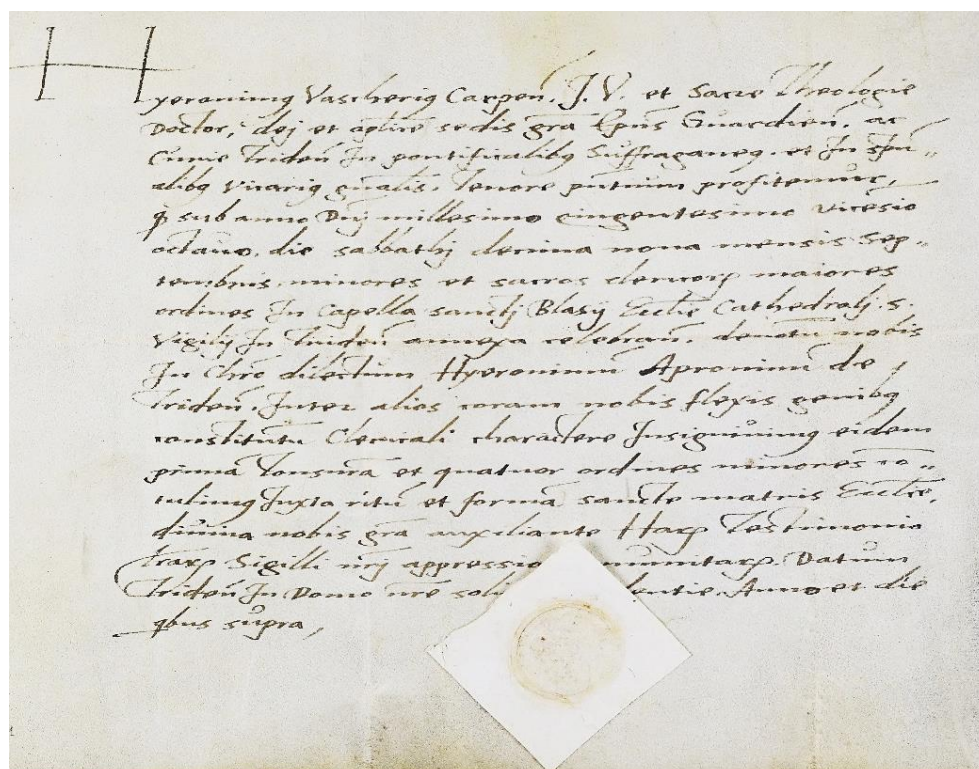 Hyeronimꝰ Vascheriꝰ Carpen̄. J. V. et Sacre Theologie
Doctor, dej et aplice sedis gr̄a Ep̄us Guardien̄. ac
Triden̄ Jn pontificalibꝰ Suffraganeꝰ. et Jn sp̄u-
alibꝰ vicariꝰ gn̄alis. Tenore pn̄tium profitemur,
ꝙ sub anno Dn̄j millesimo qingentesimo vicesio
octauo, die sabbathj decima nona mensis Sep-
tembris. minores et sacros clericoꝝ maiores
ordines Jn Capella sanctj Blasij Eccl̄ie Cathedralj. s.
Vigilij Jn Triden̄ annexa celebran̄. deuotū nobis
Jn Chr̄o dilectum Hyeronimū Aproninū de
Triden̄. Jnter alios coram nobis flexis genibꝰ
constitutū Clericali charactere Jnsigniuimꝰ eidem
primā Tonsurā et quatuor ordines minores co-
tulimꝰ Juxta ritū et formā sancte matris Eccl̄ie.
diuina nobis gr̄a auxiliante Haꝝ Testimonio
l̄raꝝ Sigilli nr̄j appressio munitaꝝ. Datum
Triden̄ Jn Domo nr̄e Anno et die
qbus supra,